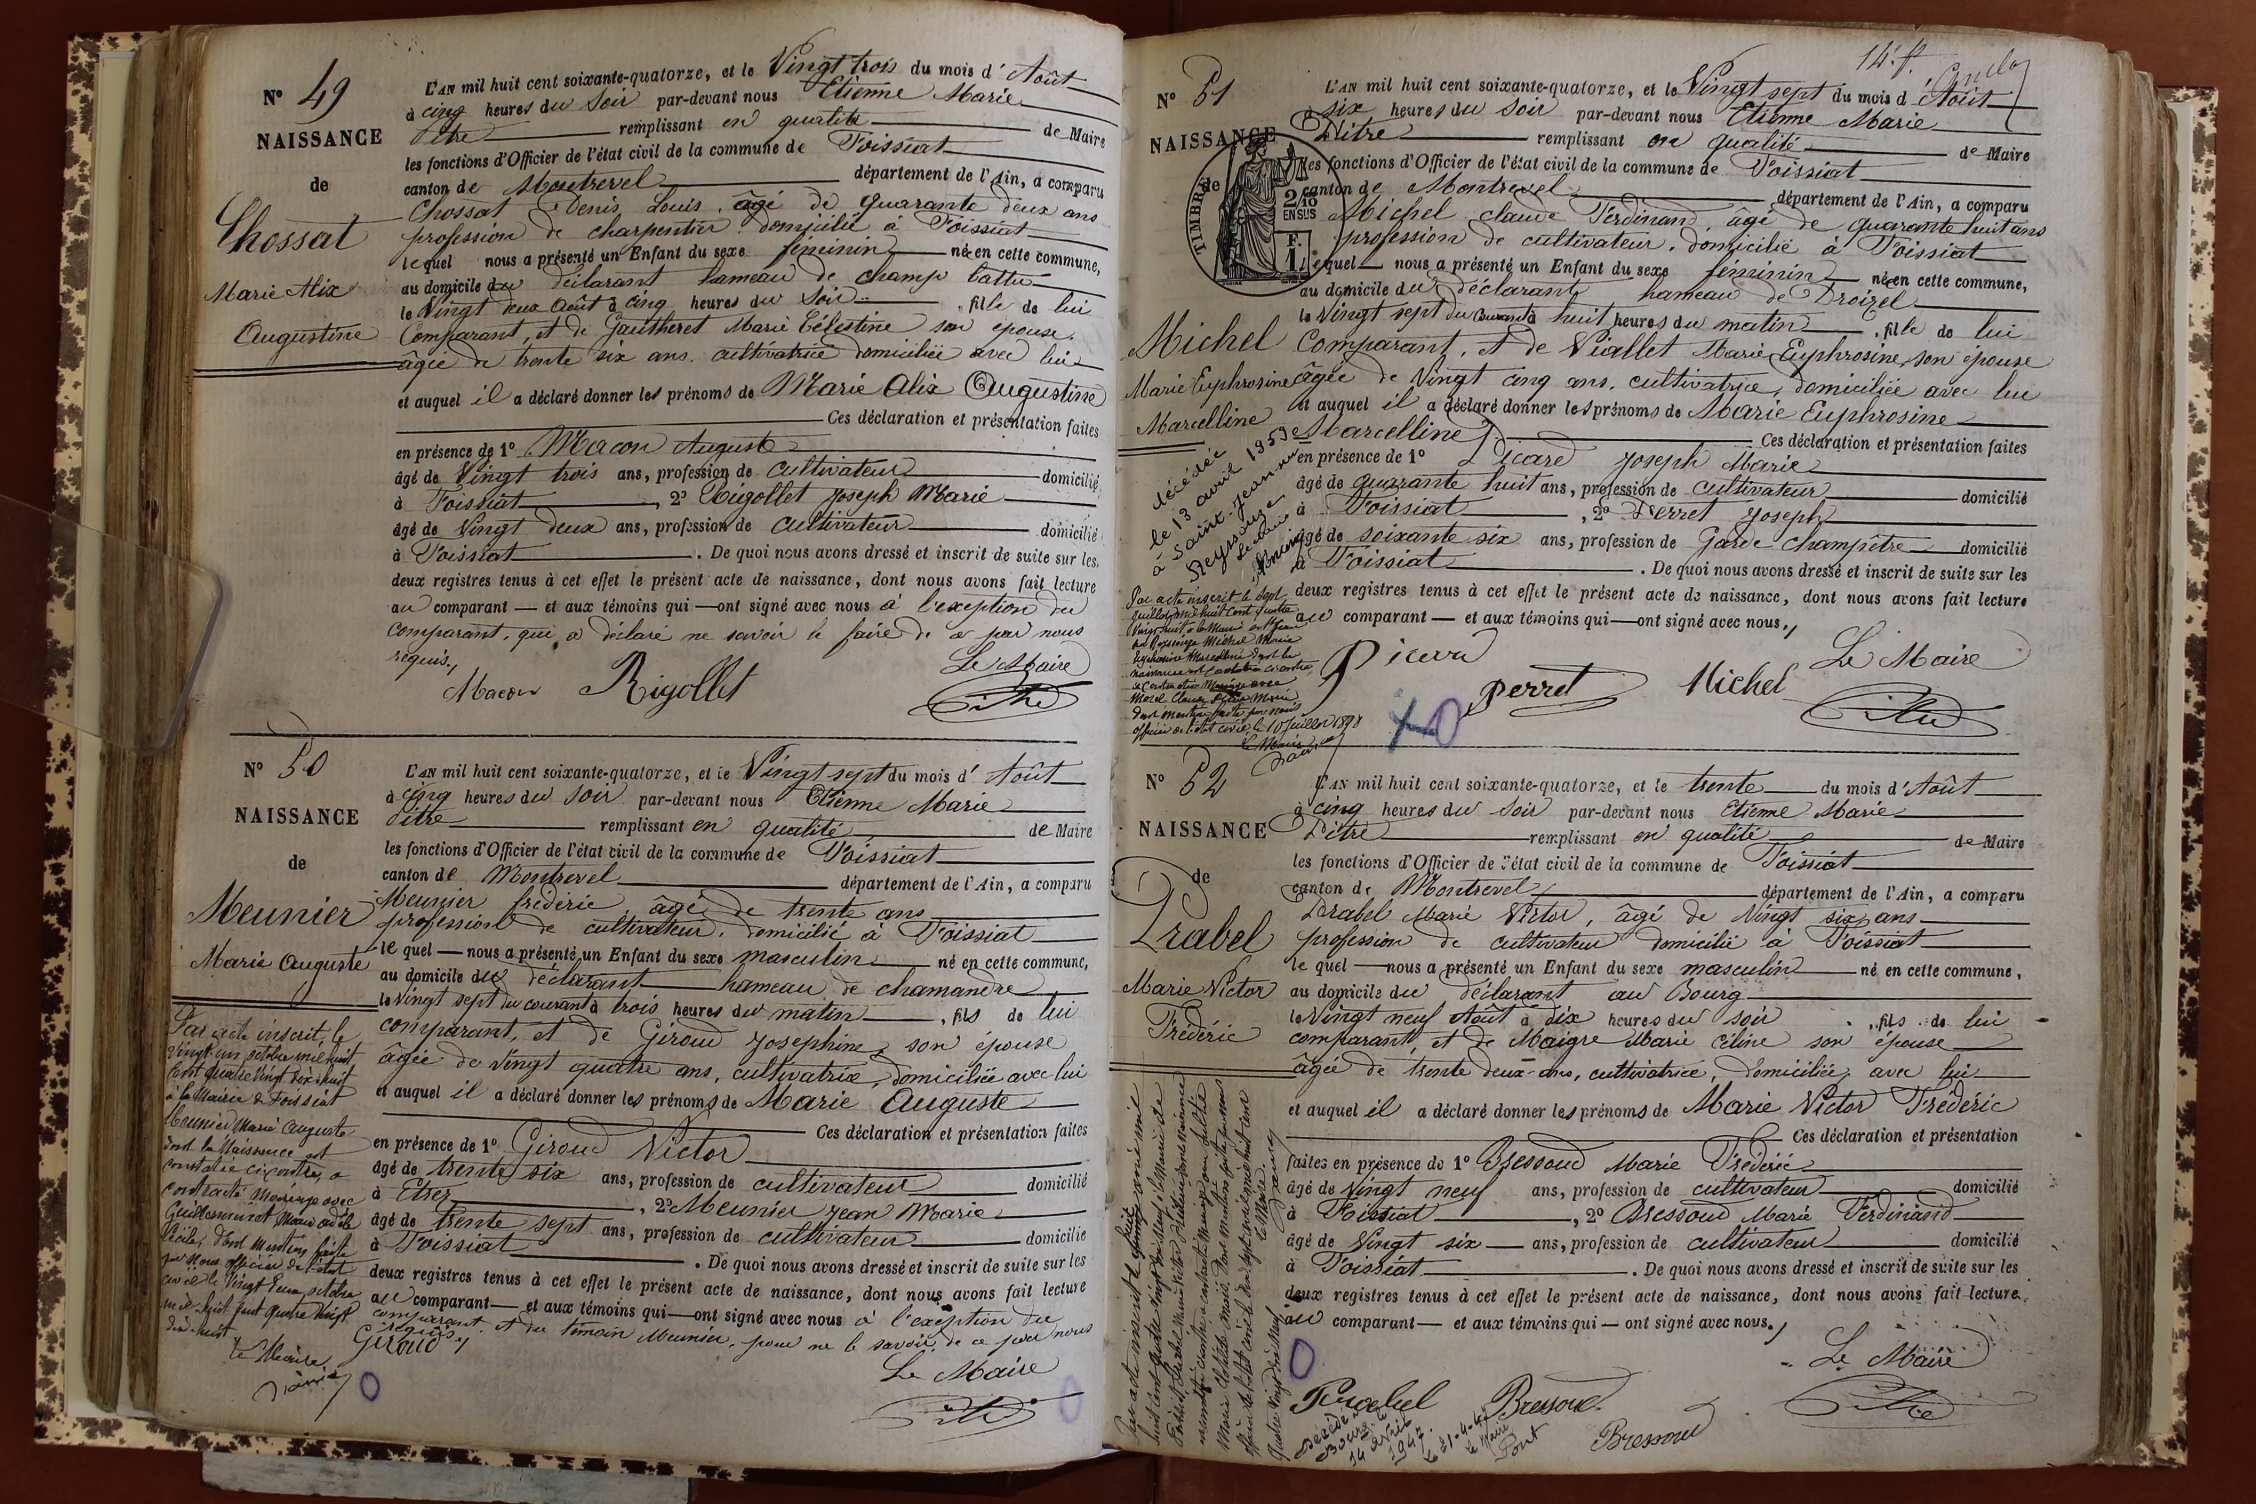 N° 49
NAISSANCE
de
Chossat
Marie Alix
Augustine
L'AN mil huit cent soixante-quatorze, et le Vingt trois du mois d'Août
à cinq heures du soir par-devant nous Etienne Marie
Pitre remplissant en qualité de Maire
les fonctions d'Officier de l'état civil de la commune de Foissiat
canton de Montrevel département de l'Ain, a comparu
Chossat Denis Louis, âgé de quarante deux ans
profession de charpentier domicilié à Foissiat
lequel nous a présenté un Enfant du sexe féminin né en cette commune,
au domicile du déclarant hameau de champ battu
le Vingt deux Août à cinq heures du soir fille de lui
Comparant, et de Gautheret Marie Célestine son épouse
âgée de trente six ans, cultivatrice domiciliée avec lui
et auquel il a déclaré donner les prénoms de Marie Alix Augustine
Ces déclaration et présentation faites
en présence de 1° Macon Auguste
âgé de Vingt trois ans, profession de cultivateur domicilié
à Foissiat, 2° Rigollet Joseph Marie
âgé de Vingt deux ans, profession de cultivateur domicilié
à Foissiat. De quoi nous avons dressé et inscrit de suite sur les
deux registres tenus à cet effet le présent acte de naissance, dont nous avons fait lecture
au comparant et aux témoins qui ont signé avec nous à l'exception du
comparant, qui a déclaré ne savoir le faire de ce par nous
requis.
Le Maire
Macon Rigollet Pitre
N° 50
NAISSANCE
de
Meunier
Marie Auguste
L'AN mil huit cent soixante-quatorze, et le Vingt sept du mois d'Août
à cinq heures du soir par-devant nous Etienne Marie
Pitre remplissant en qualité de Maire
les fonctions d'Officier de l'état civil de la commune de Foissiat
canton de Montrevel département de l'Ain, a comparu
Meunier frédéric âgé de trente ans
profession de cultivateur, domicilié à Foissiat
le quel nous a présenté un Enfant du sexe masculin né en cette commune,
au domicile du déclarant hameau de chamandre
le Vingt sept du courant à trois heures du matin, fils de lui
comparant, et de Giroud Josephine, son épouse
âgée de Vingt quatre ans, cultivatrice, domiciliée avec lui
et auquel il a déclaré donner les prénoms de Marie Auguste
Ces déclaration et présentation faites
en présence de 1° Giroud Victor
âgé de trente six ans, profession de cultivateur domicilié
à Etrez, 2° Meunier Jean Marie
âgé de trente sept ans, profession de cultivateur domicilié
à Foissiat. De quoi nous avons dressé et inscrit de suite sur les
deux registres tenus à cet effet le présent acte de naissance, dont nous avons fait lecture
au comparant et aux témoins qui ont signé avec nous à l'exception du
comparant et du témoin Meunier, pour ne le savoir de ce par nous
requis.
Giroud
Le Maire
Pitre
Par acte inscrit le
Vingt un octobre mil huit
Cent quatre Vingt dix huit
à la Mairie de Foissiat
Meunier Marie Auguste
dont la Naissance est
constatée ci contre, a
contracté Mariage avec
Guillerminet Marie
Cécile, dont Mention faite
par Nous officier de l'état
civil le Vingt octobre
mil huit cent quatre Vingt
dix huit
Le Maire
14e f.
N° 51
NAISSANCE
de
TIMBRE
2/10
EN SUS
F.
1.
Michel
Marie Euphrosine
Marcelline
L'AN mil huit cent soixante-quatorze, et le Vingt sept du mois d'Août
à six heures du soir par-devant nous Etienne Marie
Pitre remplissant en qualité de Maire
les fonctions d'Officier de l'état civil de la commune de Foissiat
canton de Montrevel département de l'Ain, a comparu
Michel claude Ferdinand, âgé de quarante huit ans
profession de cultivateur, domicilié à Foissiat
lequel nous a présenté un Enfant du sexe féminin né en cette commune,
au domicile du déclarant hameau de Droizel
le Vingt sept du courant à huit heures du matin, fille de lui
Comparant, et de Viallet Marie Euphrosine, son épouse
âgée de Vingt cinq ans, cultivatrice, domiciliée avec lui
et auquel il a déclaré donner les prénoms de Marie Euphrosine
Marcelline Ces déclaration et présentation faites
en présence de 1° Picard Joseph Marie
âgé de quarante huit ans, profession de cultivateur domicilié
à Foissiat, 2° Perret Joseph
âgé de soixante six ans, profession de Garde champêtre domicilié
à Foissiat. De quoi nous avons dressé et inscrit de suite sur les
deux registres tenus à cet effet le présent acte de naissance, dont nous avons fait lecture
au comparant et aux témoins qui ont signé avec nous.
Le Maire
Picard Perret Michel Pitre
décédée
le 13 avril 1959
à Saint-Jean-sur
Reyssouze
Par acte inscrit le Sept
Juillet mil huit cent quatre
Vingt dix huit à la Mairie de St Jean
sur Reyssouze Michel Marie
Euphrosine Marcelline dont la
naissance est constatée ci contre
a contracté Mariage avec
Morel Claude Marie
dont mention faite par nous
officier de l'état civil le 10 Juillet 1898
Le Maire
N° 52
NAISSANCE
de
Prabel
Marie Victor
Frédéric
L'AN mil huit cent soixante-quatorze, et le trente du mois d'Août
à cinq heures du soir par-devant nous Etienne Marie
Pitre remplissant en qualité de Maire
les fonctions d'Officier de l'état civil de la commune de Foissiat
canton de Montrevel département de l'Ain, a comparu
Prabel Marie Victor, âgé de Vingt six ans
profession de cultivateur domicilié à Foissiat
le quel nous a présenté un Enfant du sexe masculin né en cette commune,
au domicile du déclarant au Bourg
le Vingt neuf Août à dix heures du soir fils de lui
comparant, et de Maigre Marie céline son épouse
âgée de trente deux ans, cultivatrice, domiciliée avec lui
et auquel il a déclaré donner les prénoms de Marie Victor Frédéric
Ces déclaration et présentation
faites en présence de 1° Bressoud Marie Frédéric
âgé de Vingt neuf ans, profession de cultivateur domicilié
à Foissiat, 2° Bressoud Marie Ferdinand
âgé de Vingt six ans, profession de cultivateur domicilié
à Foissiat. De quoi nous avons dressé et inscrit de suite sur les
deux registres tenus à cet effet le présent acte de naissance, dont nous avons fait lecture
au comparant et aux témoins qui ont signé avec nous.
Le Maire
Prabel Bressoud Pitre
Bressoud
Décédé à
Bourg le
14 avril
1947.
Le 21-4-47
Le Maire
Pont